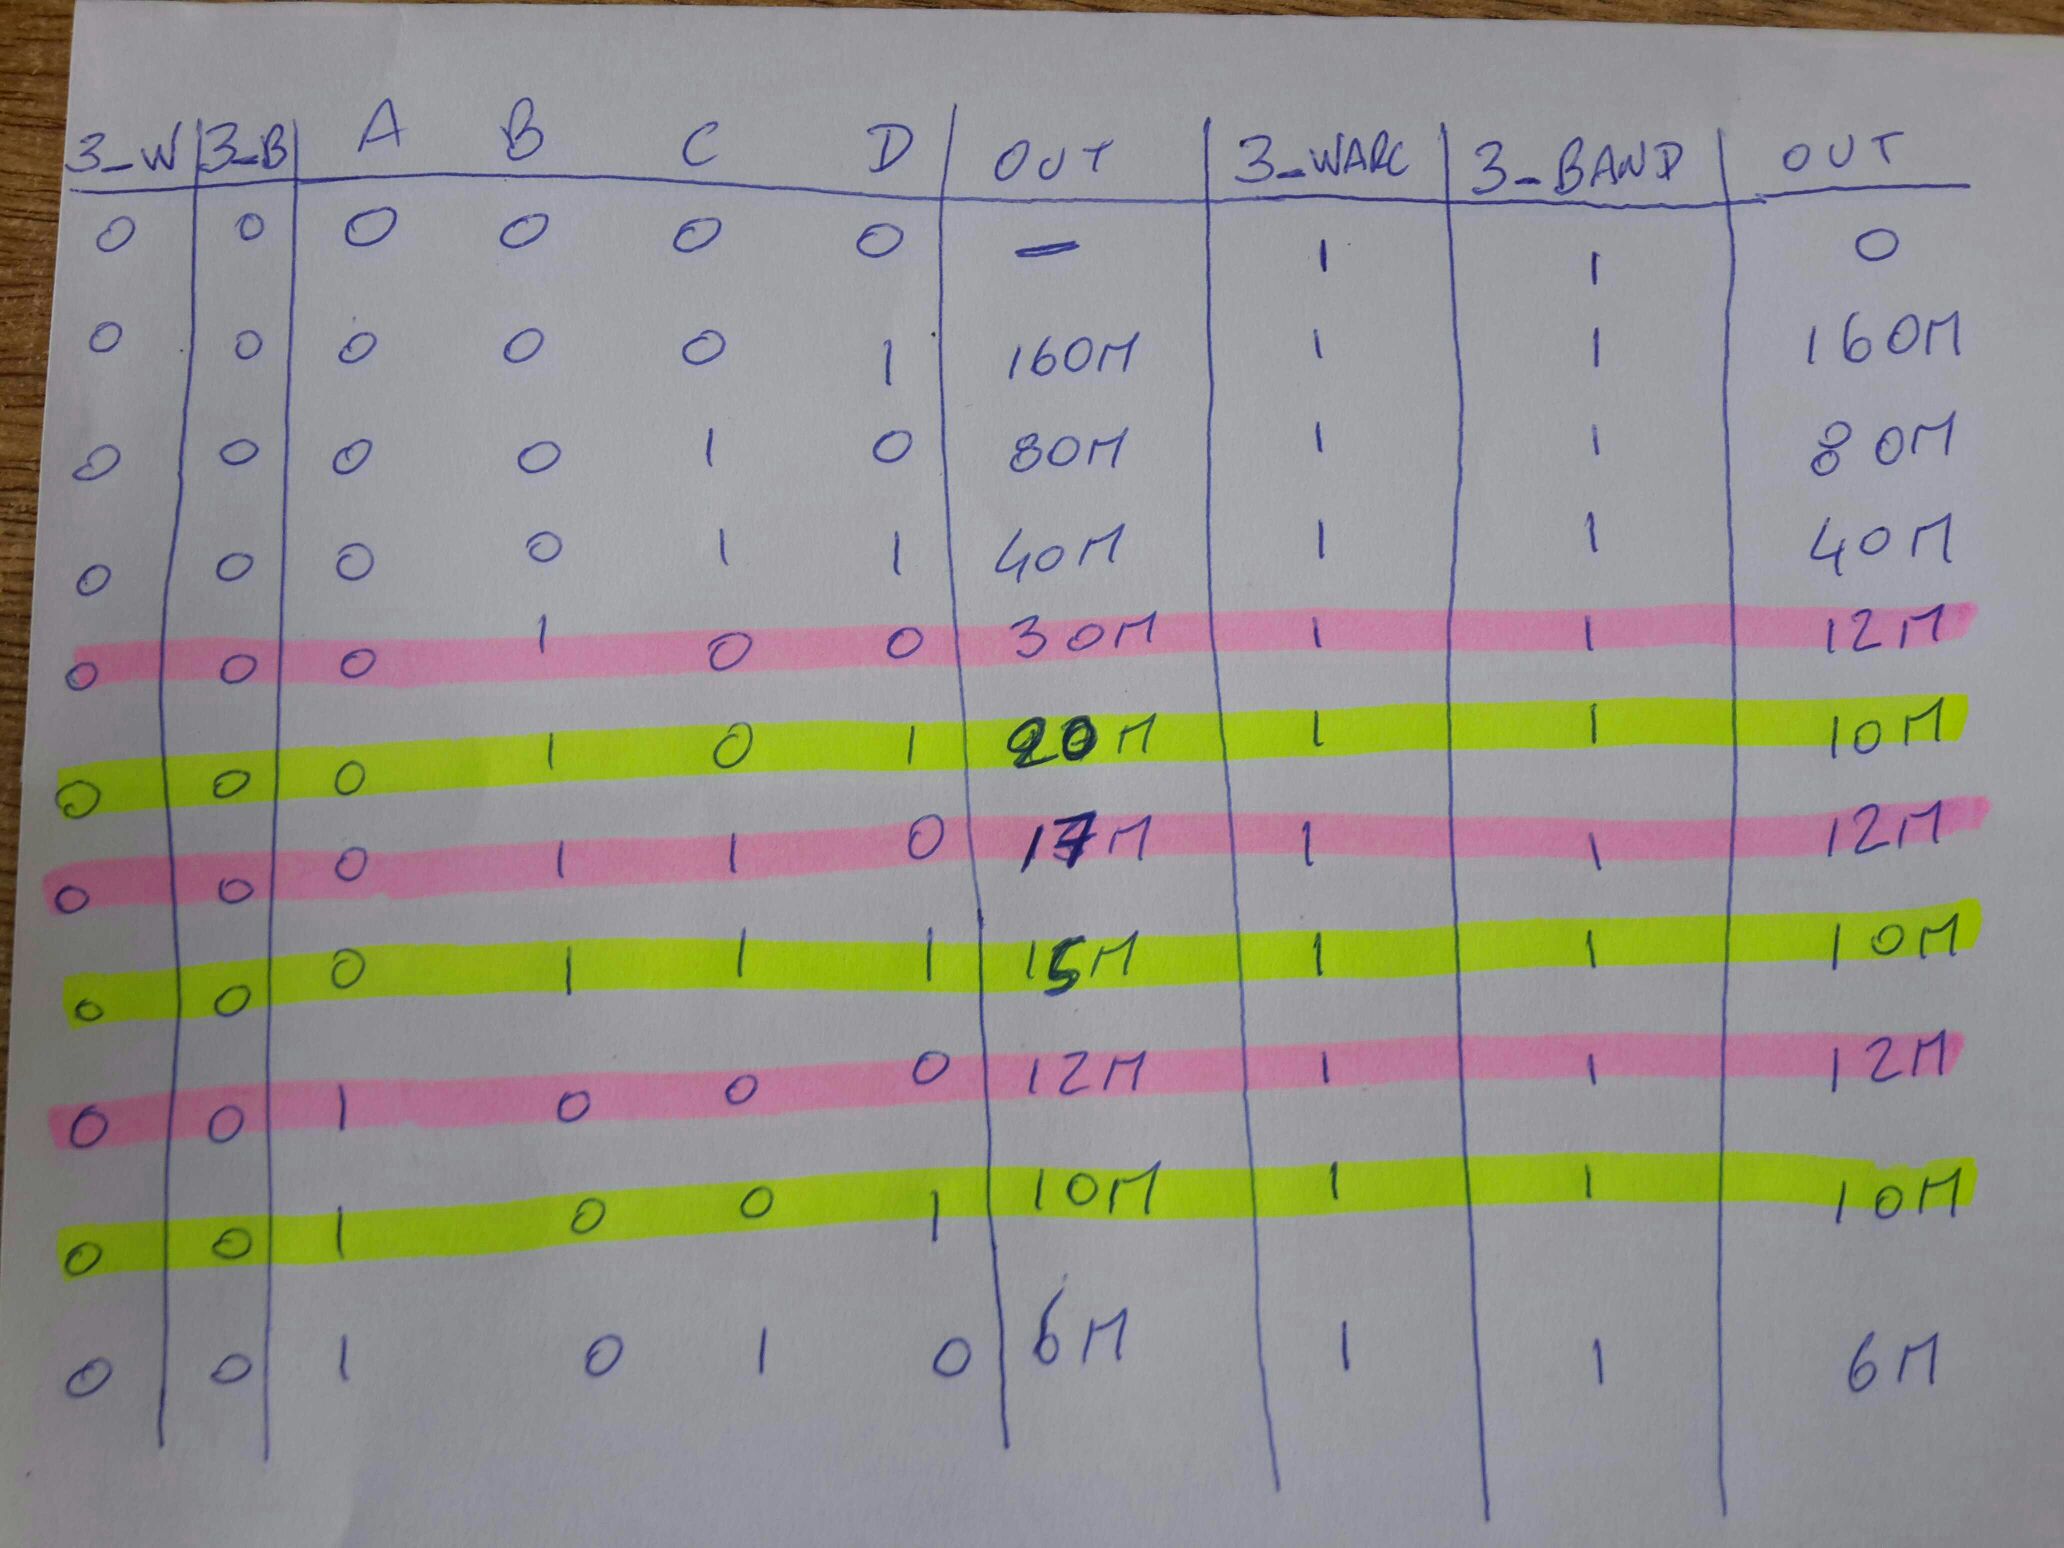 3_W 3_B A B C D OUT 3_WARC 3_BAND OUT
0 0 0 0 0 0 – 1 1 0
0 0 0 0 0 1 160M 1 1 160M
0 0 0 0 1 0 80M 1 1 80M
0 0 0 0 1 1 40M 1 1 40M
0 0 0 1 0 0 30M 1 1 12M
0 0 0 1 0 1 20M 1 1 10M
0 0 0 1 1 0 17M 1 1 12M
0 0 0 1 1 1 15M 1 1 10M
0 0 1 0 0 0 12M 1 1 12M
0 0 1 0 0 1 10M 1 1 10M
0 0 1 0 1 0 6M 1 1 6M